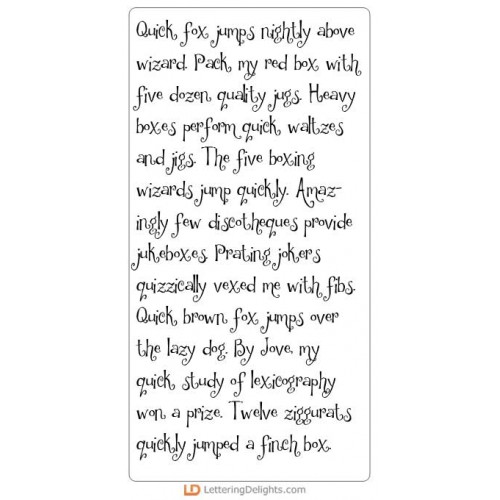 Quick fox jumps nightly above
wizard. Pack my red box with
five dozen quality jugs. Heavy
boxes perform quick waltzes
and jigs. The five boxing
wizards jump quickly. Amaz-
ingly few discotheques provide
jukeboxes. Prating jokers
quizzically vexed me with fibs.
Quick brown fox jumps over
the lazy dog. By Jove, my
quick study of lexicography
won a prize. Twelve ziggurats
quickly jumped a finch box.
LD LetteringDelights.com